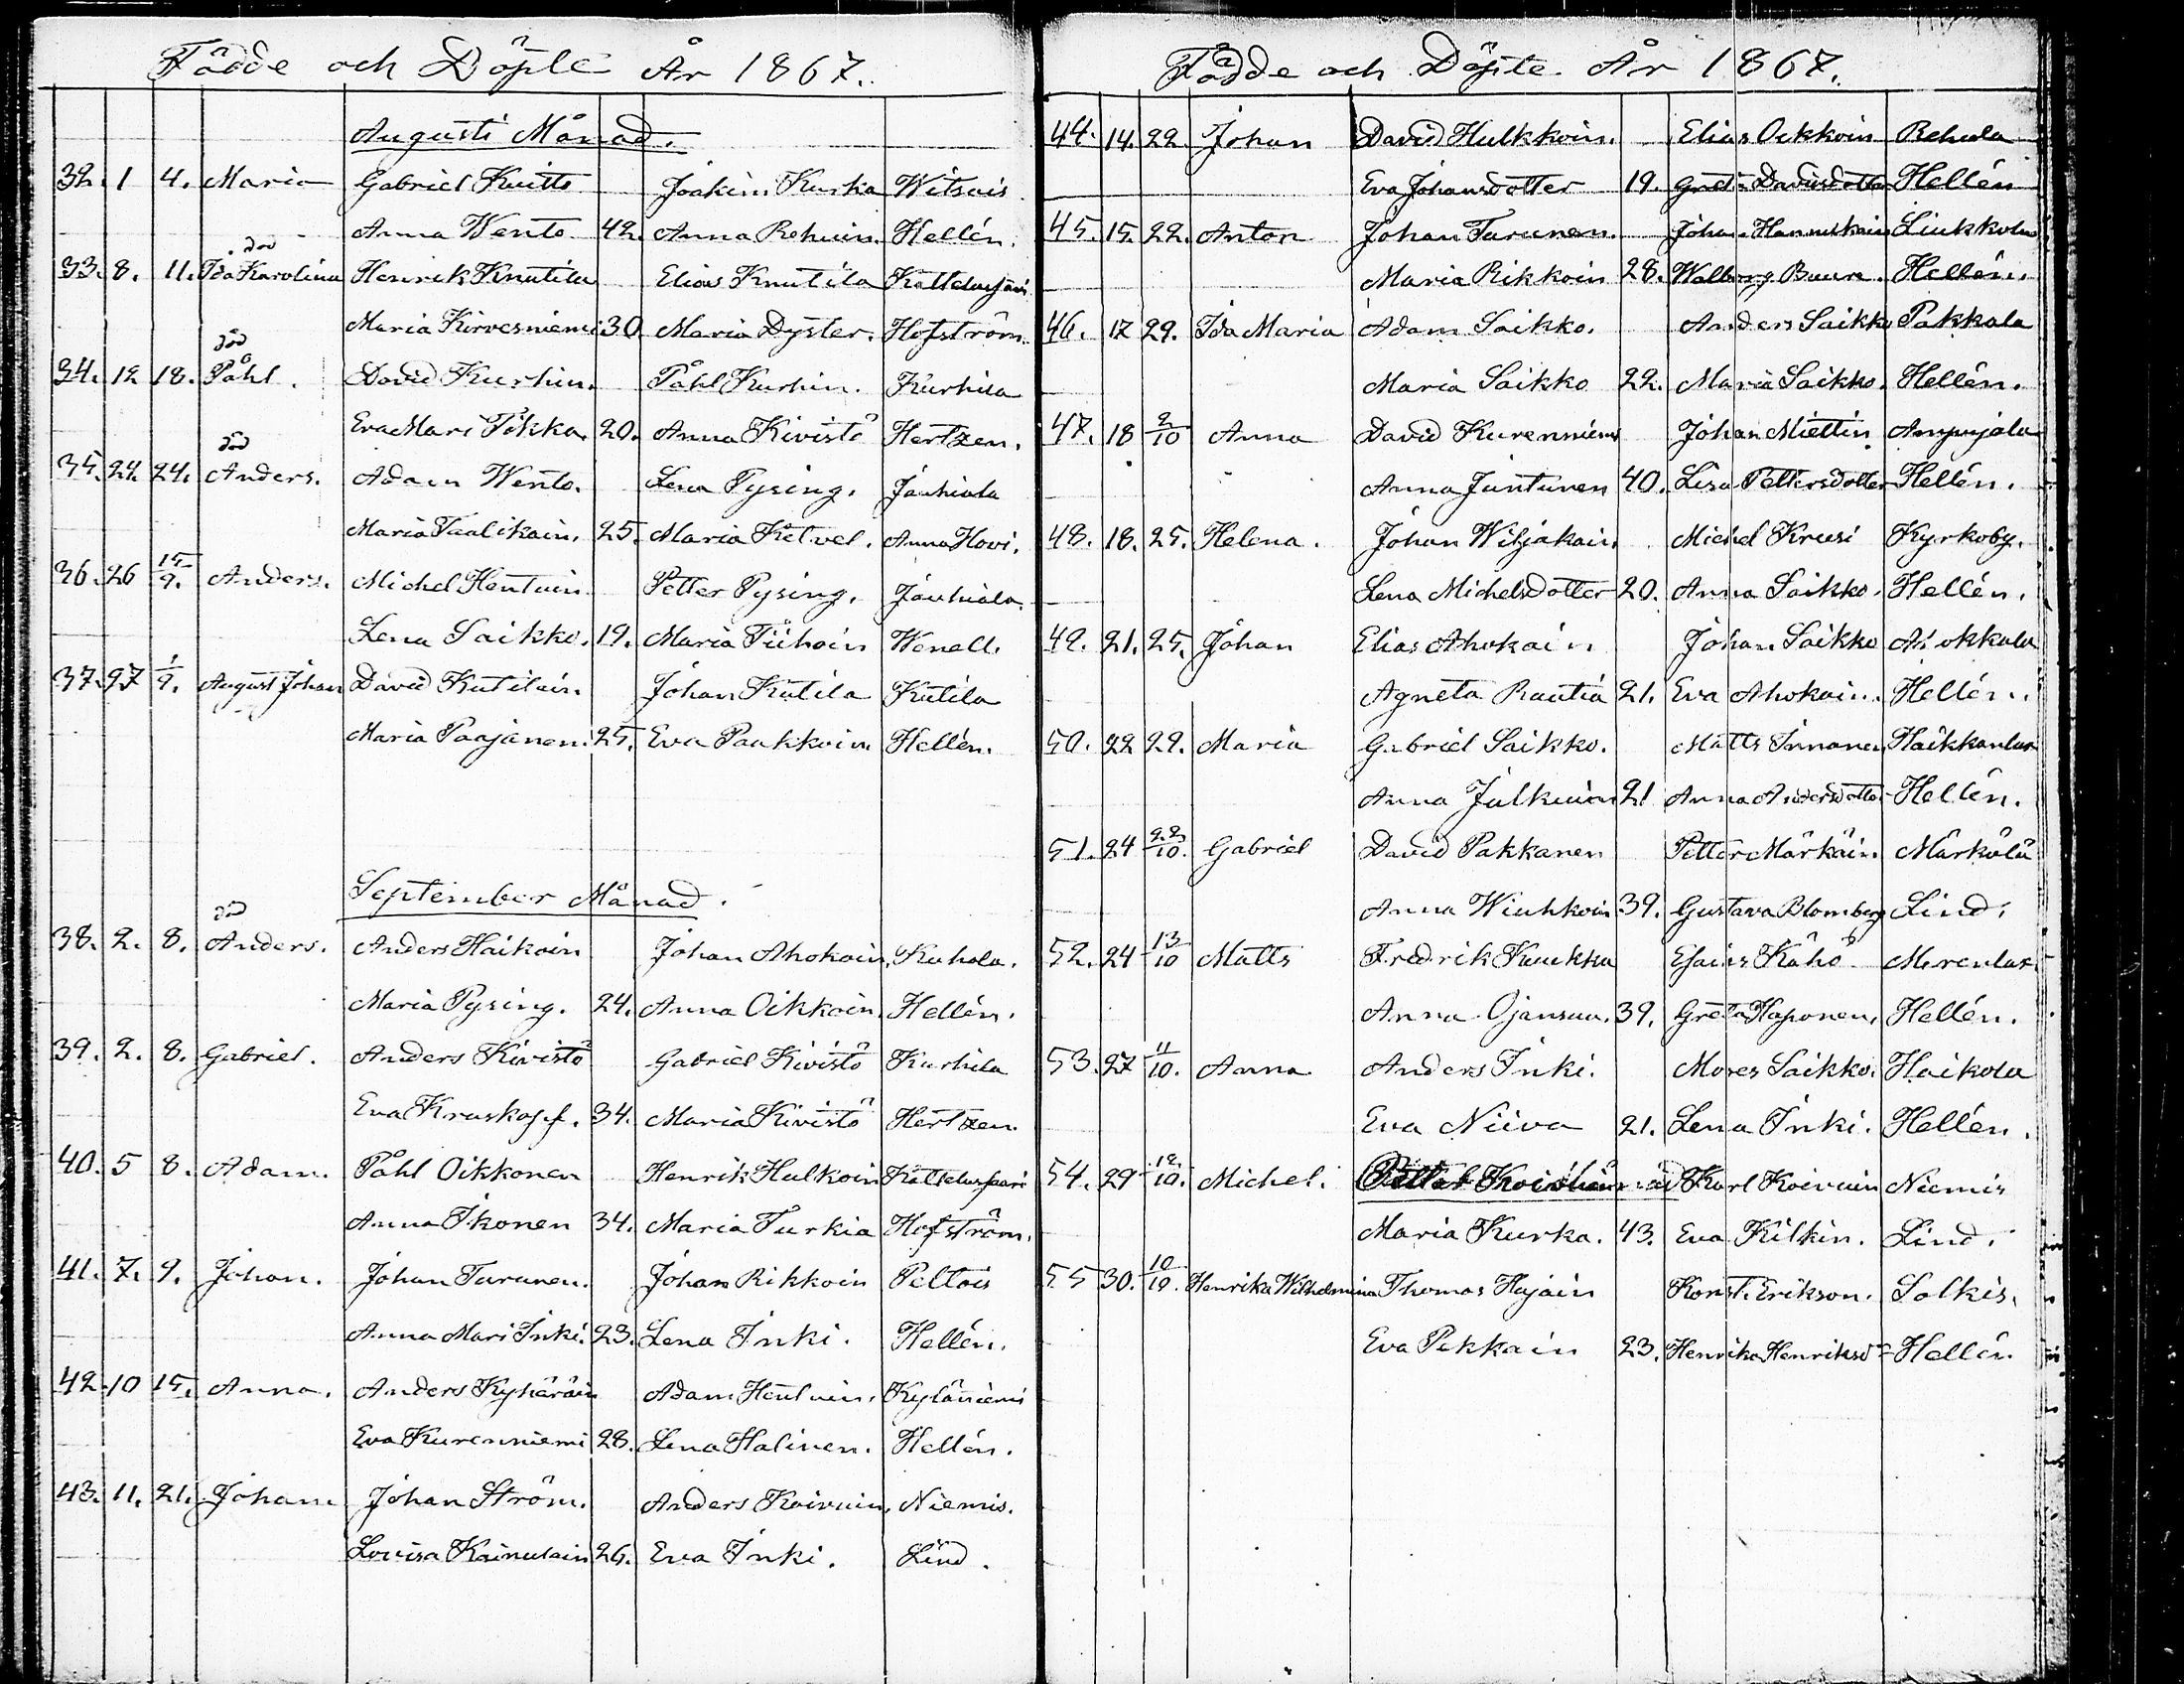 Födde och Döpte År 1867.
Augusti Månad.
32. 1 4. Maria Gabriel Kuitto Joakim Kurka Witsais
Anna Wento 42. Anna Rehuin. Hellén.
död
33. 8. 11. Ida Karolina Henrik Knutila Elias Knutila Kattelusjärvi
Maria Kirvesniemi 30. Maria Dyster. Hofström.
död
34. 12 18. Påhl. David Kurhin. Påhl Kurhin. Kurhila
Eva Mari Pikka. 20. Anna Kivistö Hertzen.
död
35. 24. 24. Anders. Adam Wento. Lena Pysing. Jauhiala
Maria Taalikain. 25. Maria Ketvel. Anna Hovi.
36. 26 15/9. Anders. Michel Hentuin Petter Pysing. Jauhiala.
Lena Saikko. 19. Maria Tiihoin Wenell.
37. 27 1/9. August Johan David Kutilain. Johan Kutila Kutila
Maria Paajanen. 25. Eva Paukkoin. Hellén.
September Månad.
död
38. 2. 8. Anders. Anders Haikoin Johan Ahokain. Kuhala.
Maria Pysing. 24. Anna Oikkoin. Hellén.
39. 2. 8. Gabriel. Anders Kivistö Gabriel Kivistö Kurhila
Eva Kruskopf. 34. Maria Kivistö Hertzen.
40. 5 8. Adam. Påhl Oikkonen Henrik Hulkoin Kattelusjaari
Anna Ikonen 34. Maria Turkia Hofström.
41. 7. 9. Johan. Johan Turunen. Johan Rikkoin Peltois
Anna Mari Inki. 23. Lena Inki. Hellén.
42. 10 15. Anna. Anders Kyhäräin Adam Hentuin. Kyläniemi
Eva Kurenniemi 28. Lena Halinen. Hellén.
43. 11. 21. Johan Johan Ström. Anders Koivuin. Niemis.
Lovisa Kainulain 26. Eva Inki. Lind.
Födde och Döpte År 1867.
44. 14. 22. Johan David Hulkkoin. Elias Oikkoin Rehula
Eva Johansdotter 19. Greta Davidsdotter Hellén
45. 15. 22. Anton Johan Turunen. Johan Hannukain Liukkola
Maria Rikkoin 28. Walborg Buure. Hellén.
46. 17 29. Ida Maria Adam Saikko. Anders Saikko Pakkala
Maria Saikko 22. Maria Saikko. Hellén.
47. 18 2/10 Anna David Kurenniemi Johan Miettin Ampujala
Anna Juntunen 40. Lisa Pettersdotter Hellén.
48. 18. 25. Helena. Johan Wiljakain. Michel Kruusi Kyrkoby.
Lena Michelsdotter 20. Anna Saikko. Hellén.
49. 21. 25. Johan Elias Ahokain Johan Saikko
Agneta Rautia 21. Eva Ahokain. Hellén.
50. 22 29. Maria Gabriel Saikko. Matts Innanen
Anna Julkuinen 21 Anna Andersdotter Hellén.
51. 24 22/10. Gabriel David Pakkanen Petter Märkäin. Märkälä
Anna Wiuhkoin 39. Gustava Blomberg Lind.
52. 24 13/10 Matts Fredrik Kuukka Esaias Kähö
Anna Ojansuu. 39. Greta Haponen. Hellén.
53. 27 11/10. Anna Anders Inki. Moses Saikko. Haikola
Eva Niiva 21. Lena Inki. Hellén.
54. 29 12/10. Michel. Karl Koivuin Niemis
Maria Kurka. 43. Eva Kilkin. Lind.
55 30. 10/10. Henrika Wilhelmina Thomas Hajain Konst. Erikson. Solkis.
Eva Pekkain 23. Henrika Henriksd= Hellén